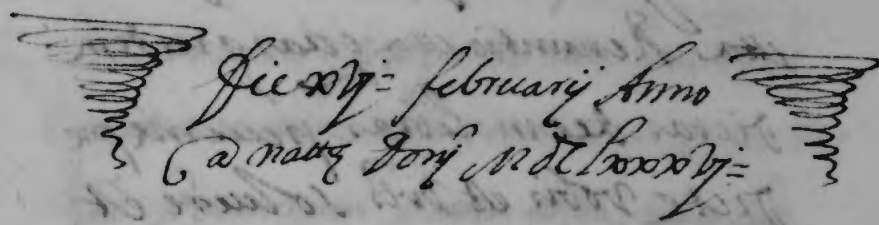 Die xvj= februarij Anno
a natte Domj M dC lxxxxvj=